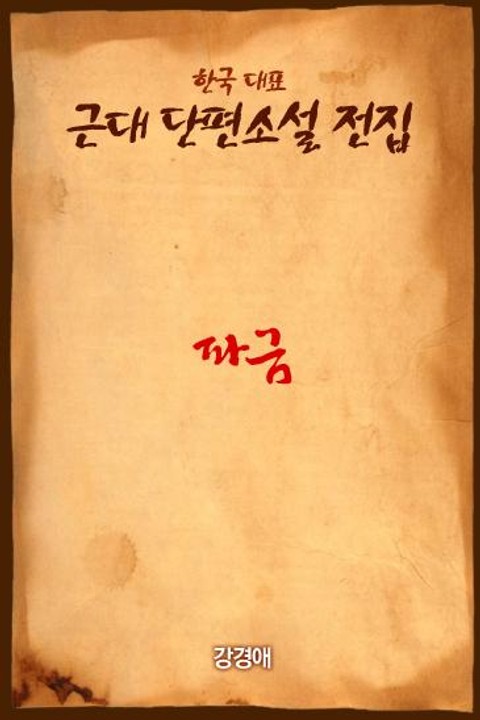 한국 대표
근대 단편소설 전집
파금
강경애